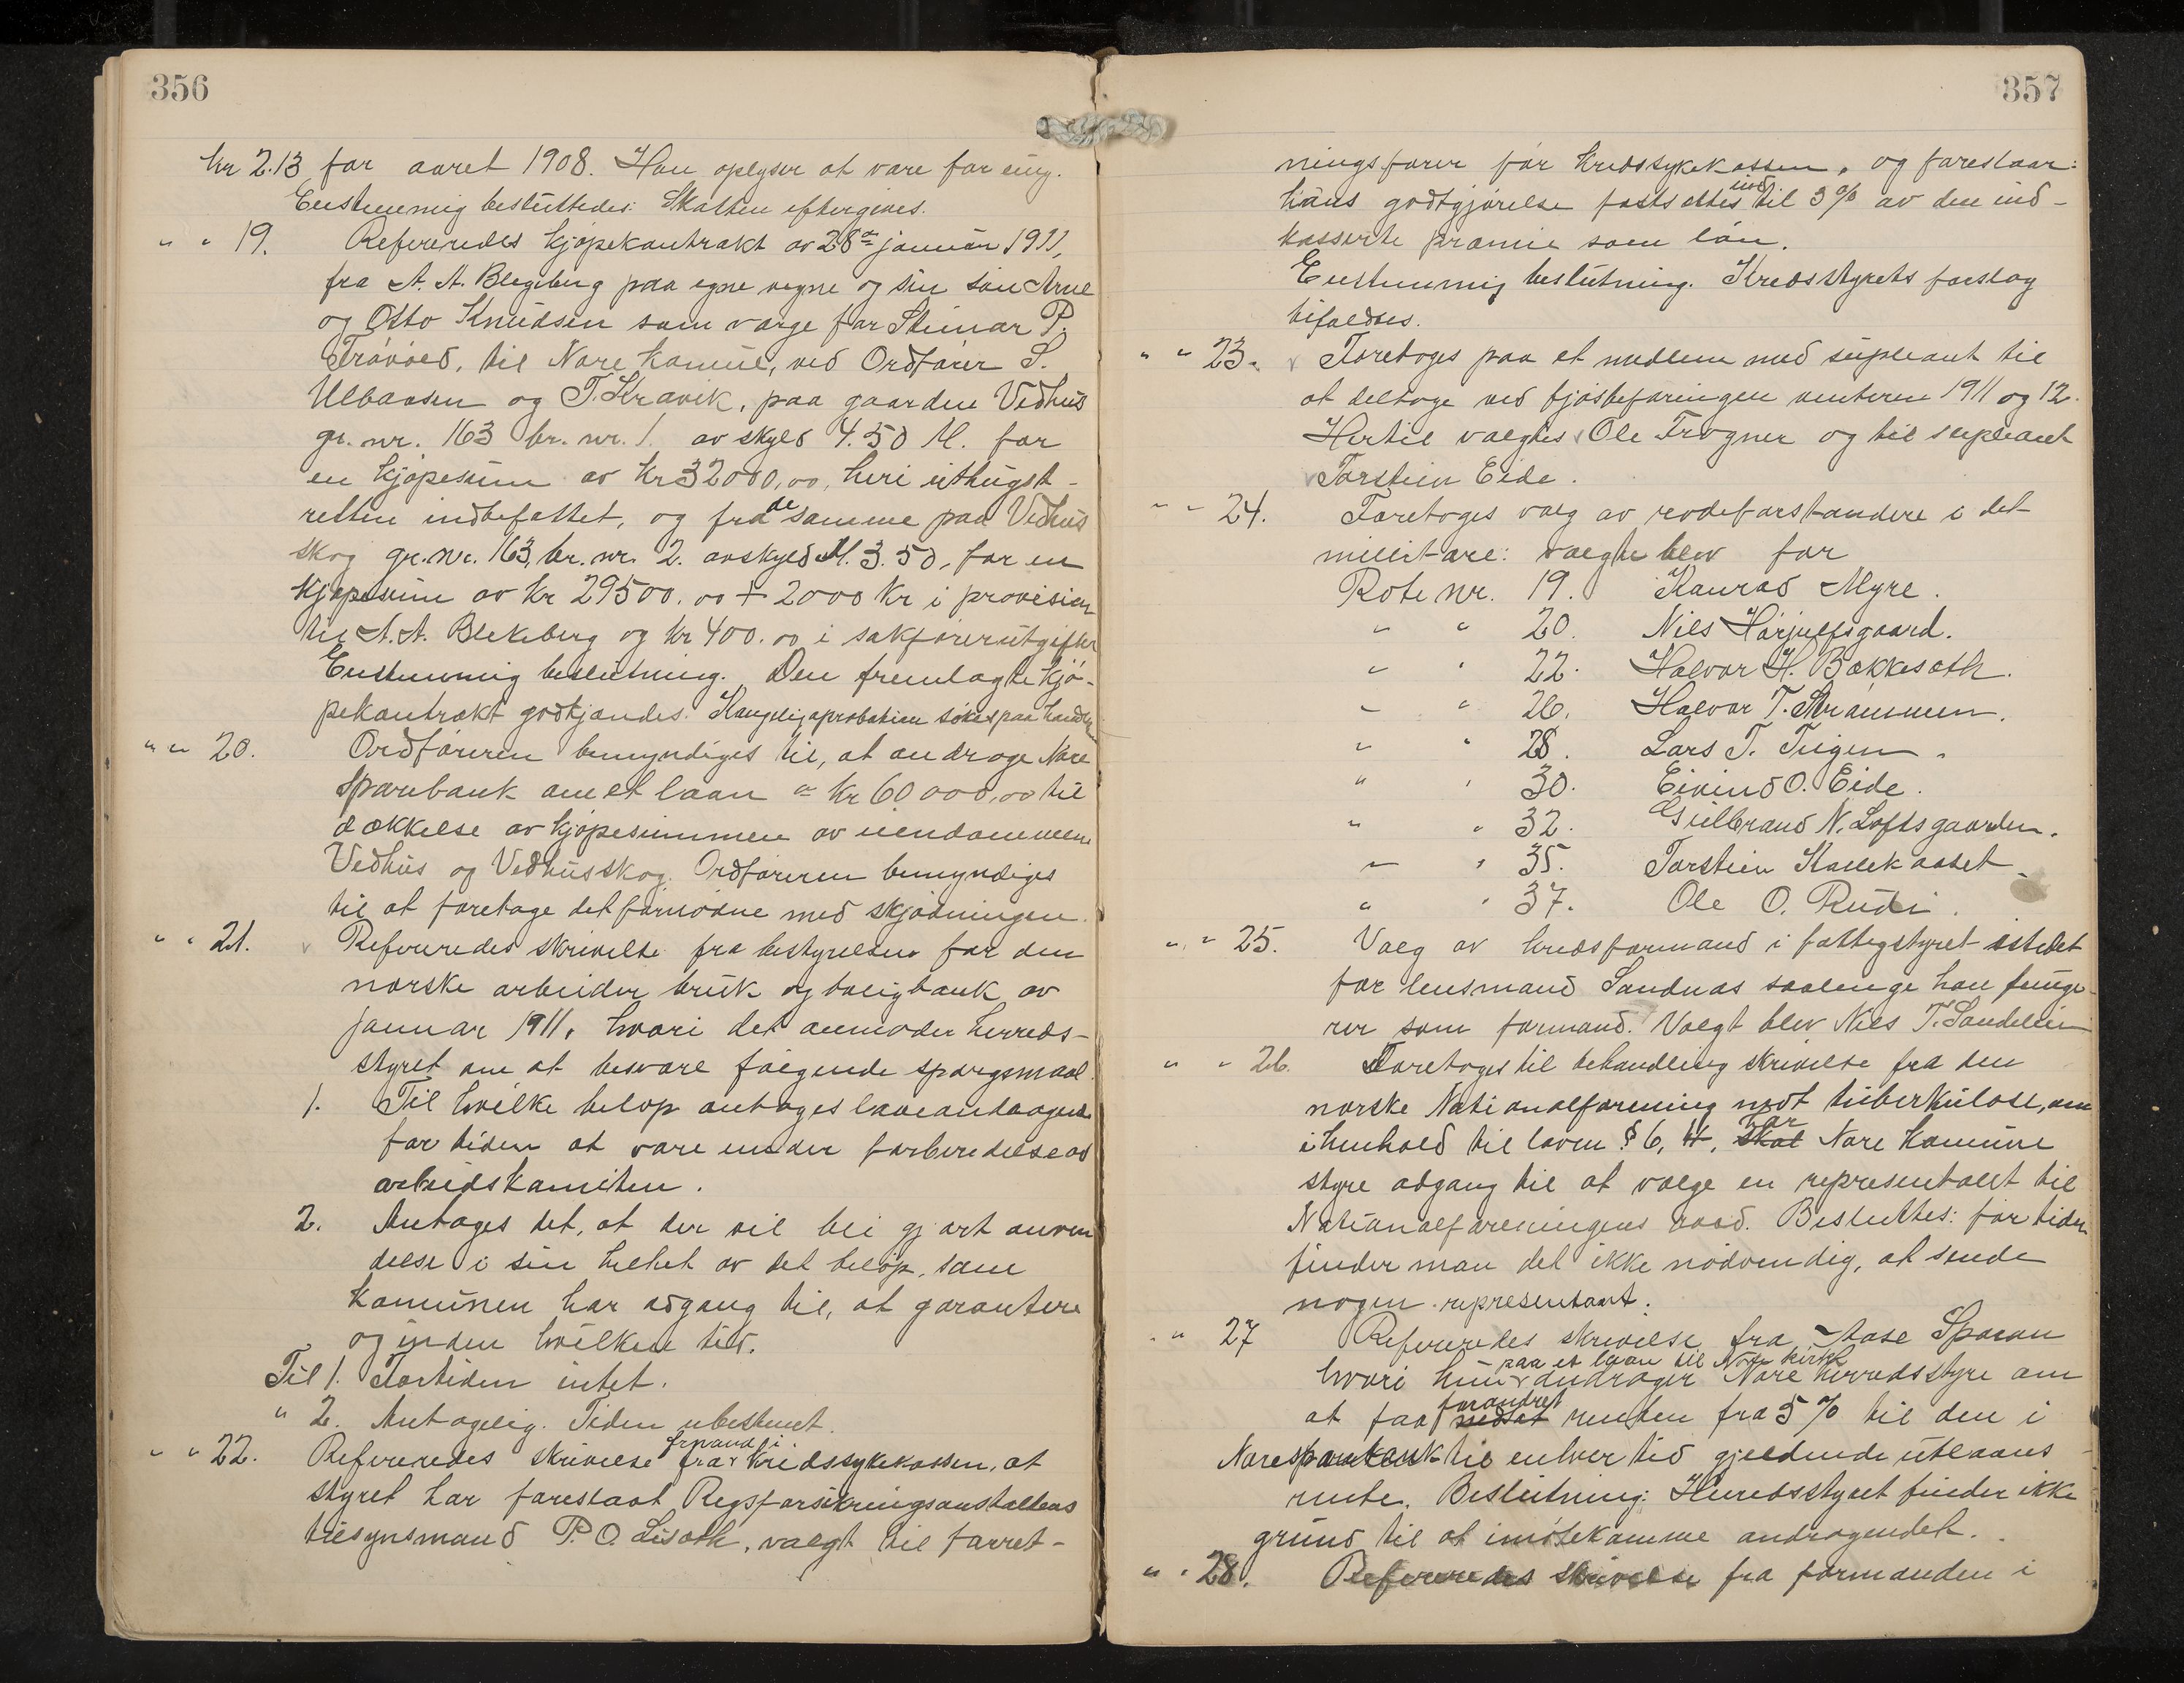 356
kr 2.13 for aaret 1908. Han oplyser at være for ung.
Enstemmig besluttedes: Skatten eftergives.
" " 19. Refereredes kjøpekontrakt av 28de januar 1911,
fra A. A. Blegeberg paa egne vegne og sin søn Arne
og Otto Knudsen som værge for Steinar P.
Frøvold, til Nore komune, ved Ordfører S.
Ulbaasen og T. Kravik, paa gaarden Vedhus
gr. nr. 163 br. nr. 1. av skyld 4.50 M. for
en kjøpesum av kr 32000,00, heri uthugst-
retten indbefattet, og fra de samme paa Vedhus
skog gr. nr. 163, br. nr. 2. avskyld M. 3.50, for en
kjøpesum av kr 29500.00 + 2000 kr i provision
til A. A. Blekeberg og kr 400.00 i sakførerutgifter
Enstemmig beslutning. Den fremlagte kjø-
pekontrakt godkjendes. Kongelig aprobation søkes paa handlen
" " 20. Ordføreren bemyndiges til, at andrage Nore
Sparebank om et laan a kr 60000,00 til
dækkelse av kjøpesummen av eiendommene
Vedhus og Vedhusskog. Ordføreren bemyndiges
til at foretage det fornødne med skjødningen.
" " 21. v Refereredes skrivelse fra bestyrelsen for den
norske arbeider bruk og boligbank av
januar 1911, hvori det anmoder herreds-
styret om at besvare følgende spørgsmaal.
1. Til hvilke beløp antages laaneandragende
for tiden at være under forberedelse av
arbeidskomiteen.
2. Antages det, at der vil bli gjort anven
delse i sin helhet av det beløp, som
komunen har adgang til, at garantere
og inden hvilken tid.
Til 1. Fortiden intet.
" 2. Antagelig. Tiden ubestemt.
" " 22. Refereredes skrivelse fra frmand i Kredssykekassen, at
styret har foreslaat Rigsforsikringsanstaltens
tilsynsmand P. O. Lisæth, valgt til forret-
357
ningsfører for Kredssykekassen, og foreslaar:
hans godtgjørelse fastsættes ind til 3% av den ind-
kasserte præmie som løn.
Enstemmig beslutning. Kredsstyrets forslag
bifaldtes.
" " 23. v Foretoges paa et medlem med supleant til
at deltage ved fjøsbefaringen vinteren 1911 og 12.
Hertil valgtes v Ole Frogner og til supleant
v Torstein Eide.
" " 24. Foretoges valg av rodeforstandere i det
militære: valgte blev for
Rote nr. 19. Konrad Myre.
" " 20. Nils Hørjulfsgaard.
" " 22. Halvor H. Bækkesæth.
" " 26. Halvor T. Strømmen.
" " 28. Lars T. Tufgen.
" " 30. Eivind O. Eide.
" " 32. Gulbrand N. Loftsgaarden.
" " 35. Torstein Kallekaaset.
" " 37. Ole O. Rudi.
" " 25. Valg av kredsformand i fattigstyret istedet
for lensmand Sandnæs saalenge han funge-
rer som formand. Valgt blev Nils T. Sandeleir
" " 26. Foretoges til behandling skrivelse fra den
norske Nationalforening mot tuberkulose, om
i henhold til loven § 6, 4, skal har Nore komune
styre adgang til at vælge en representalet til
Nationalforeningens raad. Besluttes: for tiden
finder man det ikke nødvendig, at sende
nogen representant.
" " 27 Refereredes skrivelse fra Aase Sporan
hvori hun paa et laan til Nore kirke andrager Nore herredsstyre om
at faa nedsat forandret renten fra 5% til den i
Nore sparebank til enhver tid gjeldende utlaans
rente. Beslutning: Herredsstyret finder ikke
grund til at imøtekomme andragendet.
" " 28. Refereredes skrivelse fra formanden i